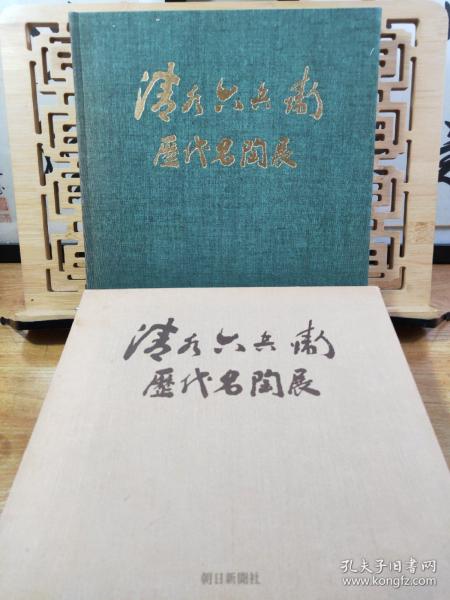 清水六兵衞
歴代名陶展
清水六兵衞
歴代名陶展
朝日新聞社
孔夫子旧书网
www.kongfz.com